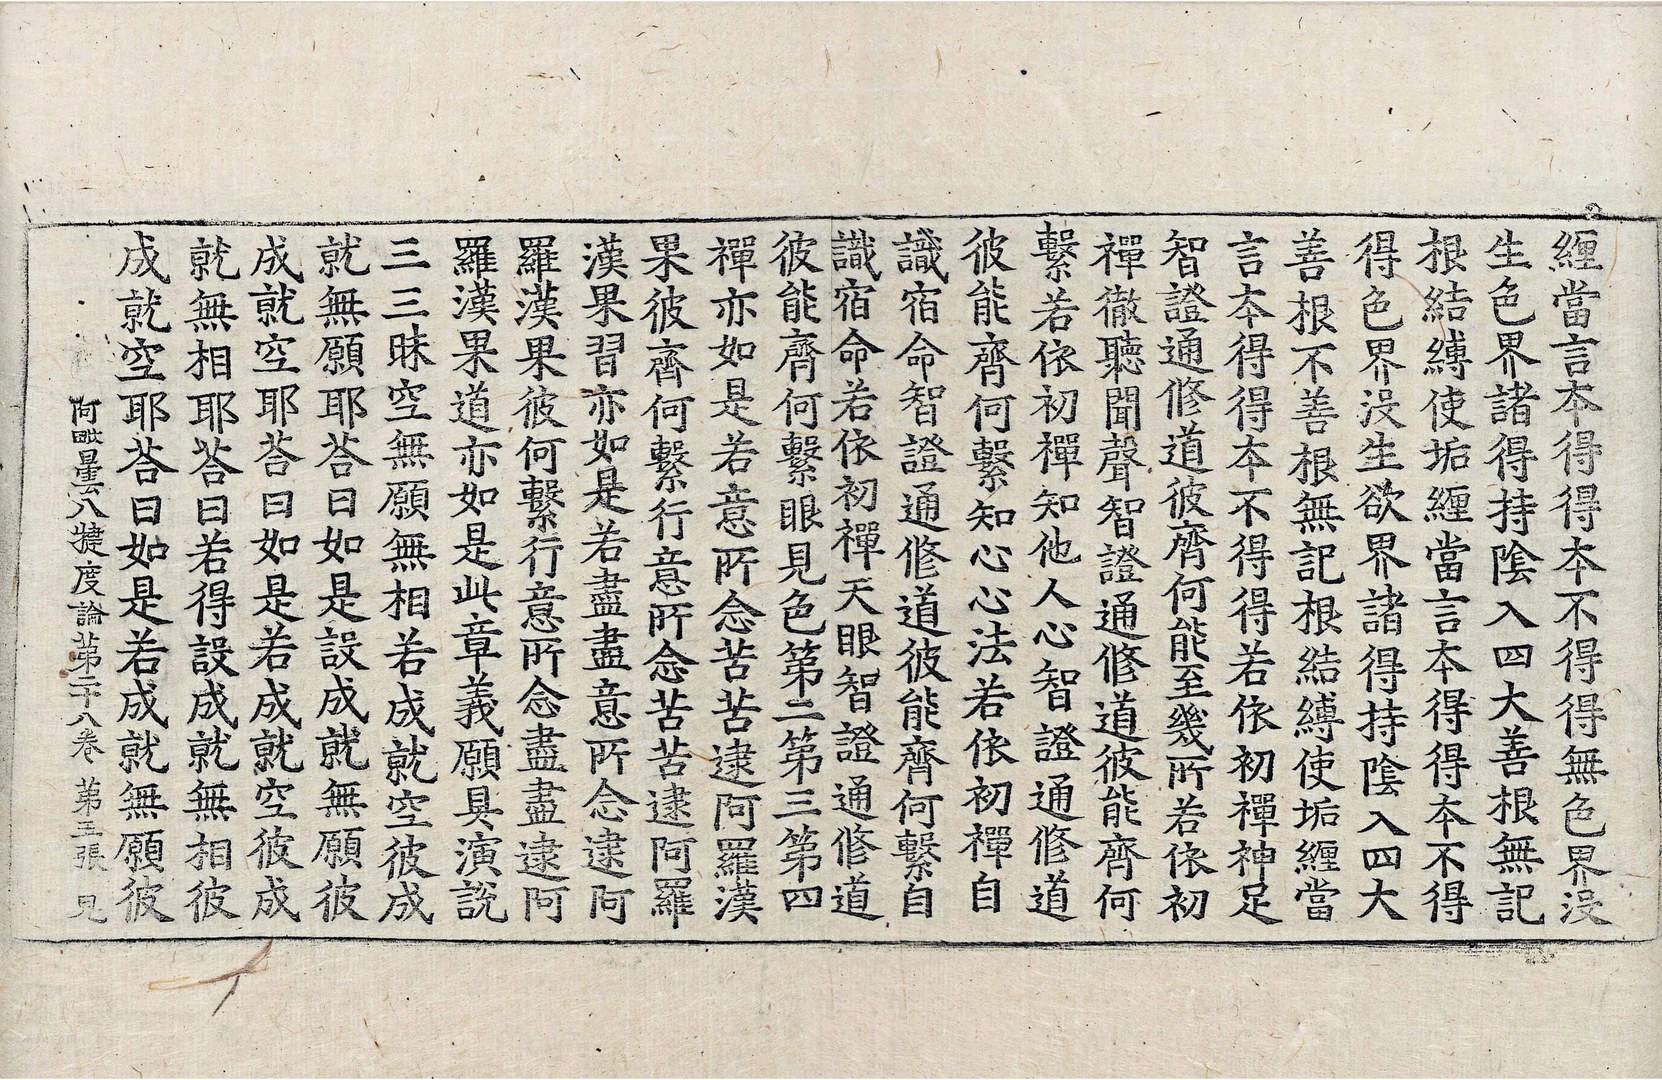 纒當言本得得本不得得無色界沒
生色界諸得持陰入四大善根無記
根結縛使垢纒當言本得得本不得
得色界沒生欲界諸得持陰入四大
善根不善根無記根結縛使垢纒當
言本得得本不得得若依初禪神足
智證通修道彼齊何能至幾所若依初
禪徹聽聞聲智證通修道彼能齊何
繫若依初禪知他人心智證通修道
彼能齊何繫知心心法若依初禪自
識宿命智證通修道彼能齊何繫自
識宿命若依初禪天眼智證通修道
彼能齊何繫眼見色第二第三第四
禪亦如是若意所念苦苦逮阿羅漢
果彼齊何繫行意所念苦苦逮阿羅
漢果習亦如是若盡盡意所念逮阿
羅漢果彼何繫行意所念盡盡逮阿
羅漢果道亦如是此章義願具演說
三三昧空無願無相若成就空彼成
就無願耶荅曰如是設成就無願彼
成就空耶荅曰如是若成就空彼成
就無相耶荅曰若得設成就無相彼
成就空耶荅曰如是若成就無願彼
阿毗曇八犍度論第二十八卷 第三張 見